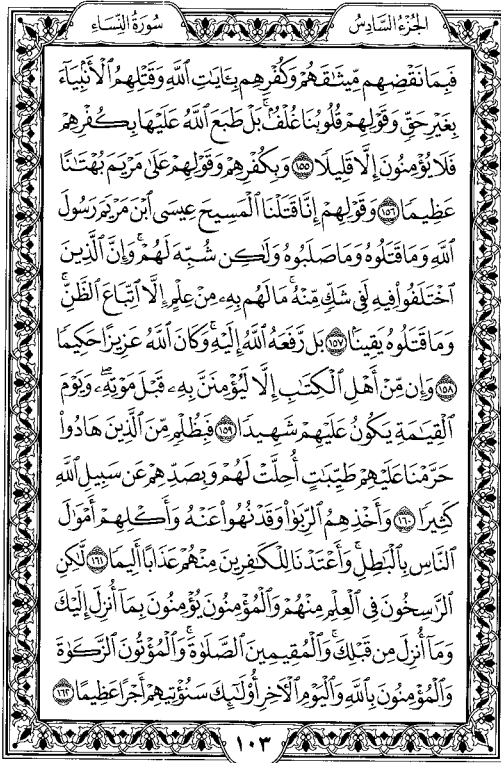 الجزء السادس
سورة النساء
فَبِمَا نَقْضِهِم مِّيثَٰقَهُمْ وَكُفْرِهِم بِـَٔايَٰتِ ٱللَّهِ وَقَتْلِهِمُ ٱلْأَنۢبِيَآءَ
بِغَيْرِ حَقٍّ وَقَوْلِهِمْ قُلُوبُنَا غُلْفٌۢ ۚ بَلْ طَبَعَ ٱللَّهُ عَلَيْهَا بِكُفْرِهِمْ
فَلَا يُؤْمِنُونَ إِلَّا قَلِيلًا ١٥٥ وَبِكُفْرِهِمْ وَقَوْلِهِمْ عَلَىٰ مَرْيَمَ بُهْتَٰنًا
عَظِيمًا ١٥٦ وَقَوْلِهِمْ إِنَّا قَتَلْنَا ٱلْمَسِيحَ عِيسَى ٱبْنَ مَرْيَمَ رَسُولَ
ٱللَّهِ وَمَا قَتَلُوهُ وَمَا صَلَبُوهُ وَلَٰكِن شُبِّهَ لَهُمْ ۚ وَإِنَّ ٱلَّذِينَ
ٱخْتَلَفُوا۟ فِيهِ لَفِى شَكٍّ مِّنْهُ ۚ مَا لَهُم بِهِۦ مِنْ عِلْمٍ إِلَّا ٱتِّبَاعَ ٱلظَّنِّ ۚ
وَمَا قَتَلُوهُ يَقِينًۢا ١٥٧ بَل رَّفَعَهُ ٱللَّهُ إِلَيْهِ ۚ وَكَانَ ٱللَّهُ عَزِيزًا حَكِيمًا
١٥٨ وَإِن مِّنْ أَهْلِ ٱلْكِتَٰبِ إِلَّا لَيُؤْمِنَنَّ بِهِۦ قَبْلَ مَوْتِهِۦ ۖ وَيَوْمَ
ٱلْقِيَٰمَةِ يَكُونُ عَلَيْهِمْ شَهِيدًا ١٥٩ فَبِظُلْمٍ مِّنَ ٱلَّذِينَ هَادُوا۟
حَرَّمْنَا عَلَيْهِمْ طَيِّبَٰتٍ أُحِلَّتْ لَهُمْ وَبِصَدِّهِمْ عَن سَبِيلِ ٱللَّهِ
كَثِيرًا ١٦٠ وَأَخْذِهِمُ ٱلرِّبَوٰا۟ وَقَدْ نُهُوا۟ عَنْهُ وَأَكْلِهِمْ أَمْوَٰلَ
ٱلنَّاسِ بِٱلْبَٰطِلِ ۚ وَأَعْتَدْنَا لِلْكَٰفِرِينَ مِنْهُمْ عَذَابًا أَلِيمًا ١٦١ لَّٰكِنِ
ٱلرَّٰسِخُونَ فِى ٱلْعِلْمِ مِنْهُمْ وَٱلْمُؤْمِنُونَ يُؤْمِنُونَ بِمَآ أُنزِلَ إِلَيْكَ
وَمَآ أُنزِلَ مِن قَبْلِكَ ۚ وَٱلْمُقِيمِينَ ٱلصَّلَوٰةَ ۚ وَٱلْمُؤْتُونَ ٱلزَّكَوٰةَ
وَٱلْمُؤْمِنُونَ بِٱللَّهِ وَٱلْيَوْمِ ٱلْءَاخِرِ أُو۟لَٰٓئِكَ سَنُؤْتِيهِمْ أَجْرًا عَظِيمًا ١٦٢
١٠٣